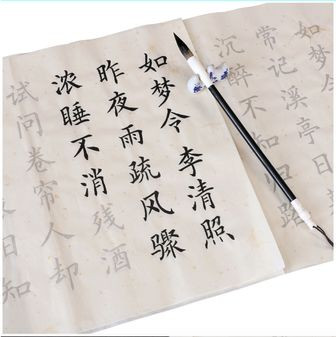 如梦令
常记溪亭日
沉醉不
归路
如梦令 李清照
昨夜雨疏风骤
浓睡不消残酒
试问卷帘人却
知